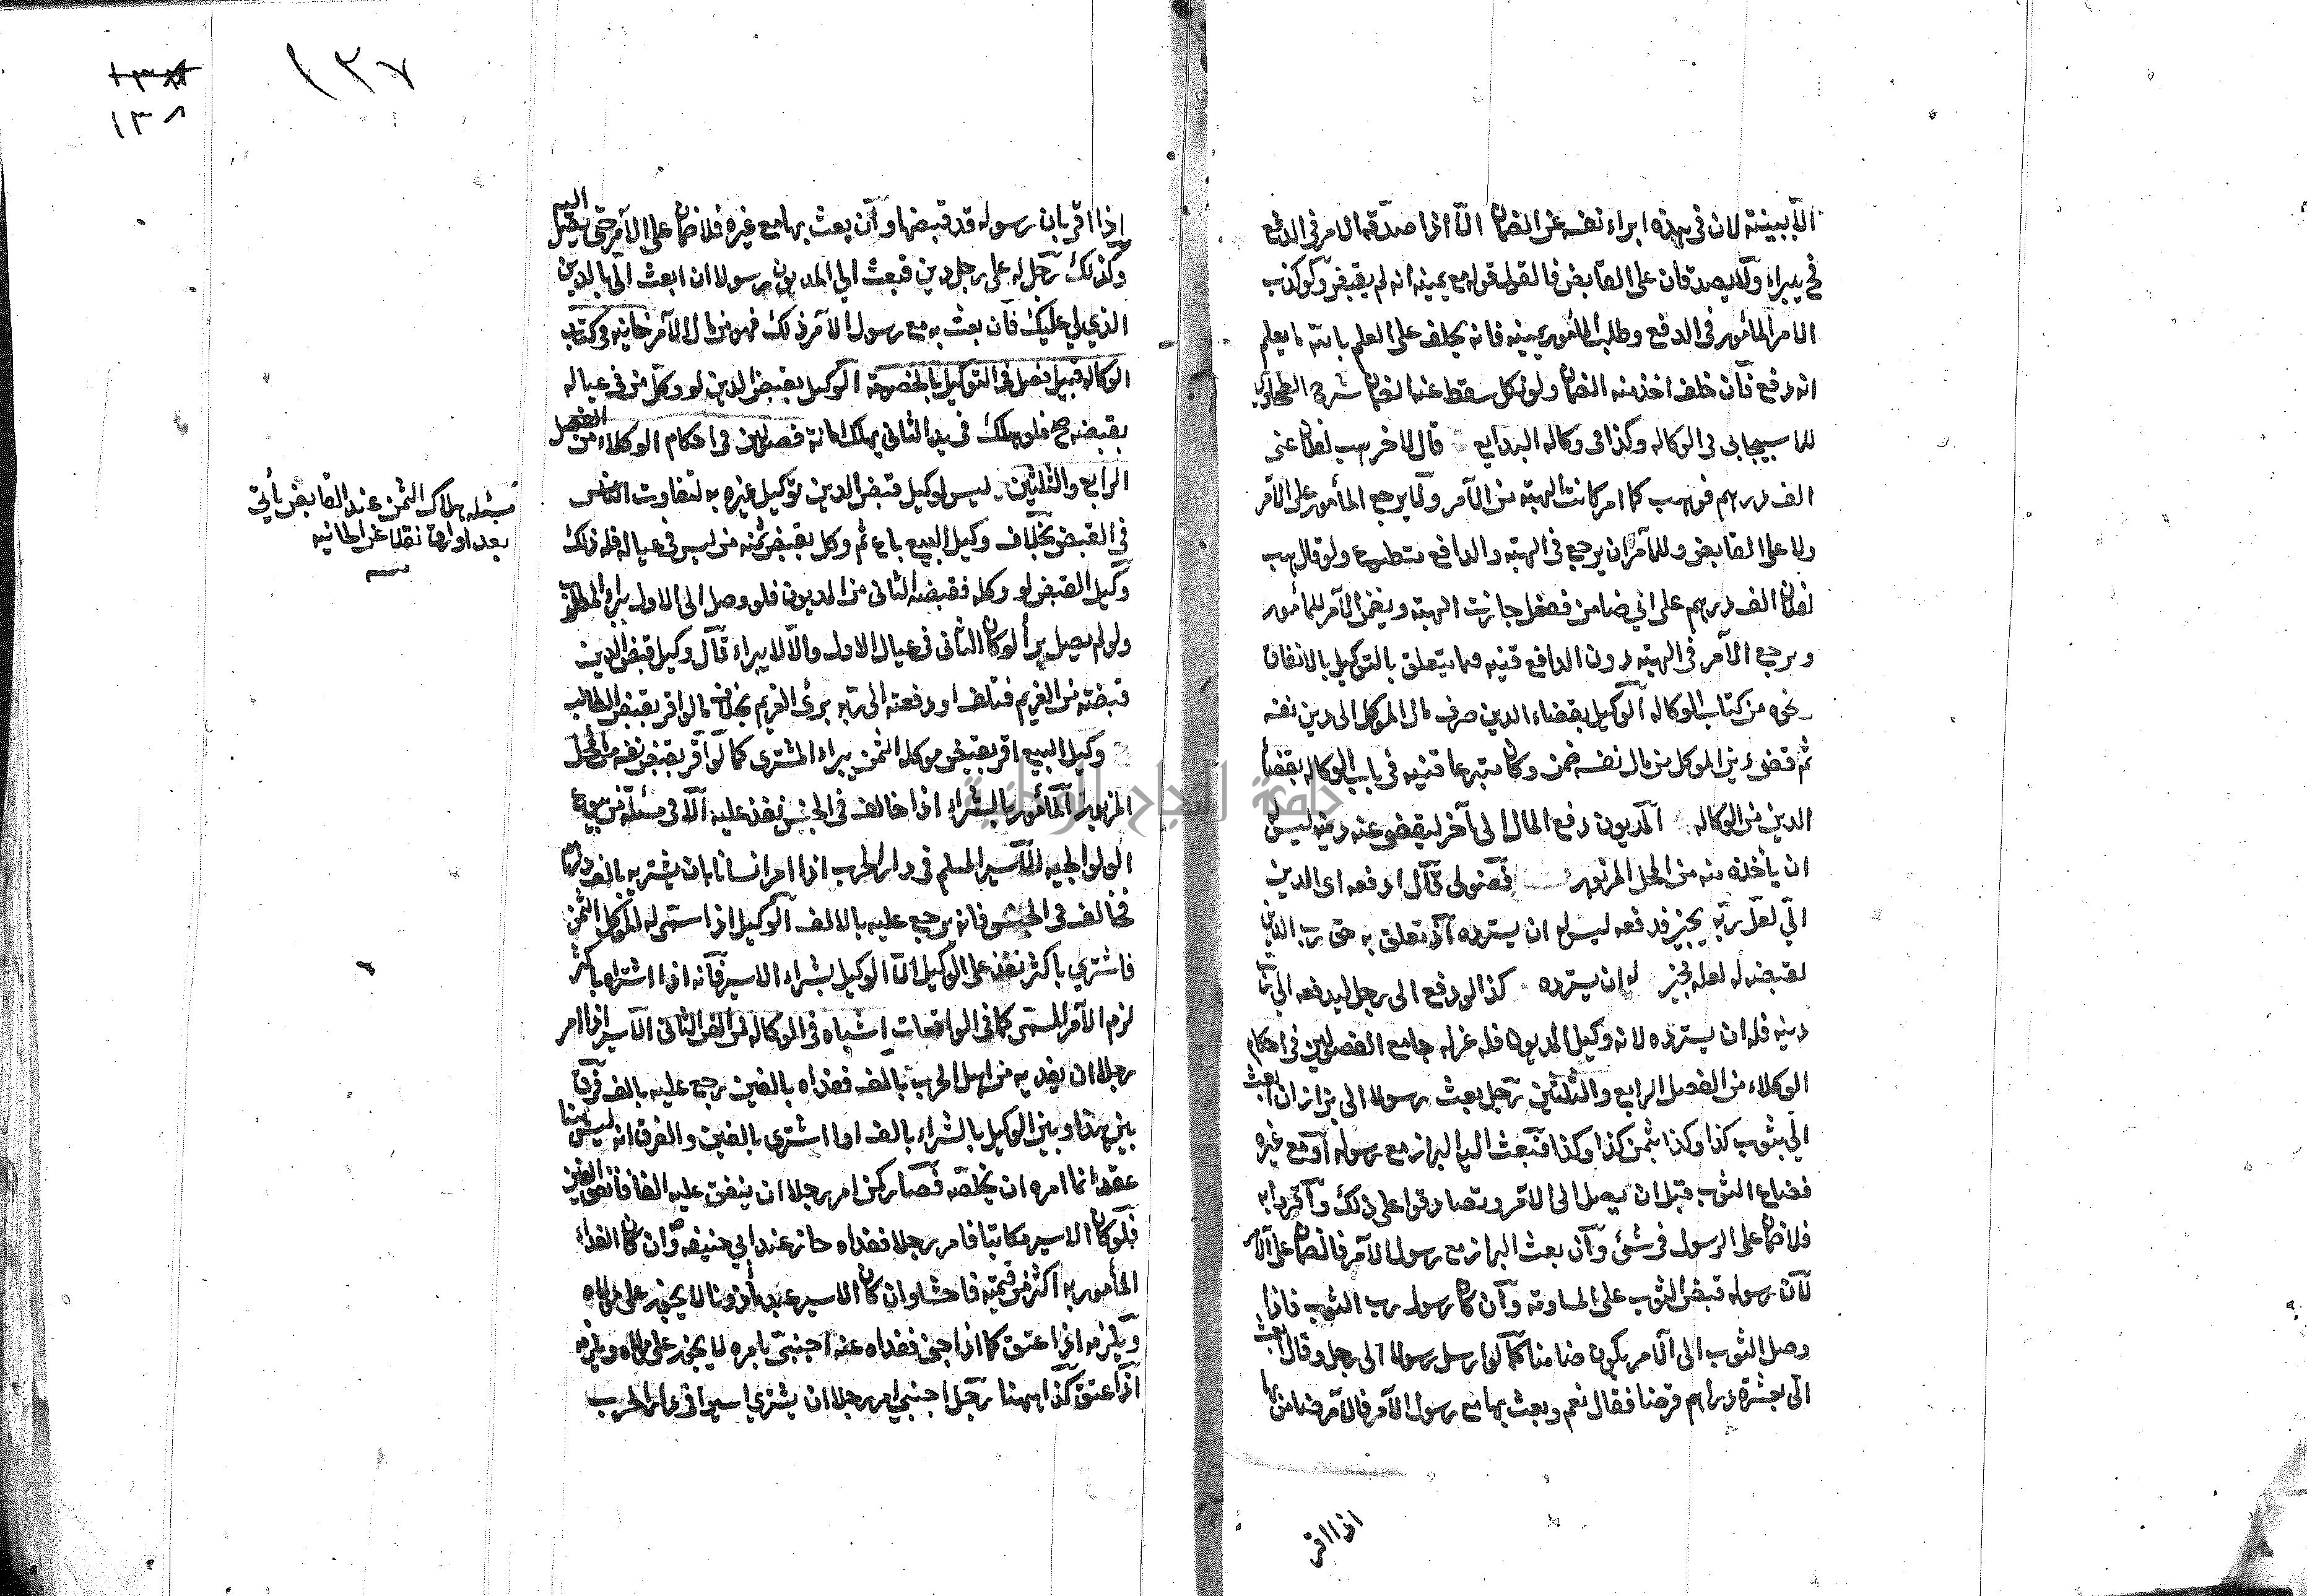 الا ببينة لان فى هذه ابراء نفسه عن الضمان الا اذا صدقه الامر فى الدفع
فح يبراء ولا يصدقان على القابض فالقول قوله مع يمينه انه لم يقبض ولو كذب
الامر المأمور فى الدفع وطلب المأمور يمينه فانه يحلف على العلم بالله ما يعلم
انه دفع فان حلف اخذ منه الضمان ولو نكل سقط عنه الضمان شرح الطحاوى
للاسبيجابى فى الوكاله وكذا فى وكاله البدايع قال لاخر هب لفلان عنى
الف درهم فوهب كما امر كانت الهبة من الآمر ولا يرجع المأمور على الآمر
ولا على القابض وللآمر ان يرجع فى الهبة والدافع متطوع ولو قال هب
لفلان الف درهم على انى ضامن ففعل جازت الهبة ويضمن الآمر للمأمور
ويرجع الآمر فى الهبة دون الدافع قنيه فيما يتعلق بالتوكيل بالانفاق
ونحوه من كتاب الوكاله الوكيل بقضاء الدين صرف مال الموكل الى دين نفسه
ثم قضى دين الموكل من مال نفسه ضمن وكان متبرعا قنيه فى باب الوكاله بقضاء
الدين من الوكاله المديون دفع المال الى آخر ليقضى عنه دينه ليس له
ان يأخذه منه من المحل المزبور فضولى قال ادفعه اى الدين
الىّ لعل ربه يجيز فدفعه ليس له ان يسترده اذ تعلق به حق رب الدين
لقبضه له لعله يجيز له ان يسترده كذا لو دفع الى رجل ليدفعه الى رب
دينه فله ان يسترده لانه وكيل المديون فله عزله جامع الفصولين فى احكام
الوكلاء من الفصل الرابع والثلثين رجل بعث رسولا الى بزاز ان ابعث
الىّ بثوب كذا وكذا بثمن كذا وكذا فبعث اليه البزاز مع رسوله او مع غيره
فضاع الثوب قبل ان يصل الى الآمر وتصادقوا على ذلك واقروا به
فلا ضمان على الرسول فى شئ وان بعث البزاز مع رسول الآمر فالضمان على الآمر
لان رسوله قبض الثوب على المساومة وان كان رسول رب الثوب فاذا
وصل الثوب الى الآمر يكون ضامنا كما لو ارسل رسولا الى رجل وقال ابعث
الىّ بعشرة دراهم قرضا فقال نعم وبعث بها مع رسول الآمر فالآمر ضامن لها
اذا اقر
١٣٧
١٣٨
اذا اقر بان رسوله قد قبضها وان بعث بها مع غيره فلا ضمان على الآمر حتى يصل اليه
وكذلك رجل له على رجل دين فبعث الى المديون رسولا ان ابعث الىّ بالدين
الذي لي عليك فان بعث به مع رسول الآمر ذلك فهو من مال الآمر خانيه فى كتاب
الوكاله قبيل فصل فى التوكيل بالخصومة الوكيل بقبض الدين لو وكل من فى عياله
بقبضه صح فلو هلك فى يد الثانى يهلك امانة فصولين فى احكام الوكلاء من الفصل
الرابع والثلثين ليس لوكيل قبض الدين توكيل غيره به لتفاوت الناس
فى القبض بخلاف وكيل البيع باع ثم وكل بقبض ثمنه من ليس فى عياله فله ذلك
وكيل القبض لو وكله فقبضه الثانى من المديون فلو وصل الى الاول براء المطلوب
ولو لم يصل برأ لو كان الثانى فى عيال الاول والا لا يبراء قال وكيل قبض الدين
قبضته من الغريم فتلف او دفعته الى ربه برئ الغريم بخلاف ما لو اقر بقبض الطالب
وكيل البيع اقر بقبض موكله الثمن يبراء المشترى كما لو اقر بقبض نفسه من المحل
المزبور المأمور بالشراء اذا خالف فى الجنس نفذ عليه الا فى مسئلة من بيوع
الولوالجيه الاسير المسلم فى دار الحرب اذا امر انسانا بان يشتريه بالف درهم
فخالف فى الجنس فانه يرجع عليه بالالف الوكيل اذا سمى له الموكل الثمن
فاشترى باكثر نفذ على الوكيل الا الوكيل بشراء الاسير فانه اذا اشتراه باكثر
لزم الآمر المسمى كما فى الواقعات اشباه فى الوكاله من الفن الثانى الاسير اذا امر
رجلا ان يفديه من اهل الحرب بالف ففداه بالفين يرجع عليه بالف فرق
بين هذا وبين الوكيل بالشراء بالف اذا اشترى بالفين والفرق انه ليس هنا
عقد انما امره ان يخلصه فصار كمن امر رجلا ان ينفق عليه الفا فانفق الفين
فلو كان الاسير مكاتبا فامر رجلا ففداه جاز عند ابي حنيفه وان كان الفداء
المأمور به اكثر من قيمته فاحشا وان كان الاسير عبدا مأذونا لا يجوز على مولاه
ويلزمه اذا عتق كما اذا جنى ففداه عنه اجنبى بامره لا يجوز على مولاه ويلزمه
اذا عتق كذا ههنا رجل اجنبي امر رجلا ان يشتري اسيرا فى دار الحرب
مسئله هلاك الثمن عند القابض يأتى
بعد اوراق نقلا عن الخانيه
جامعة النجاح الوطنية